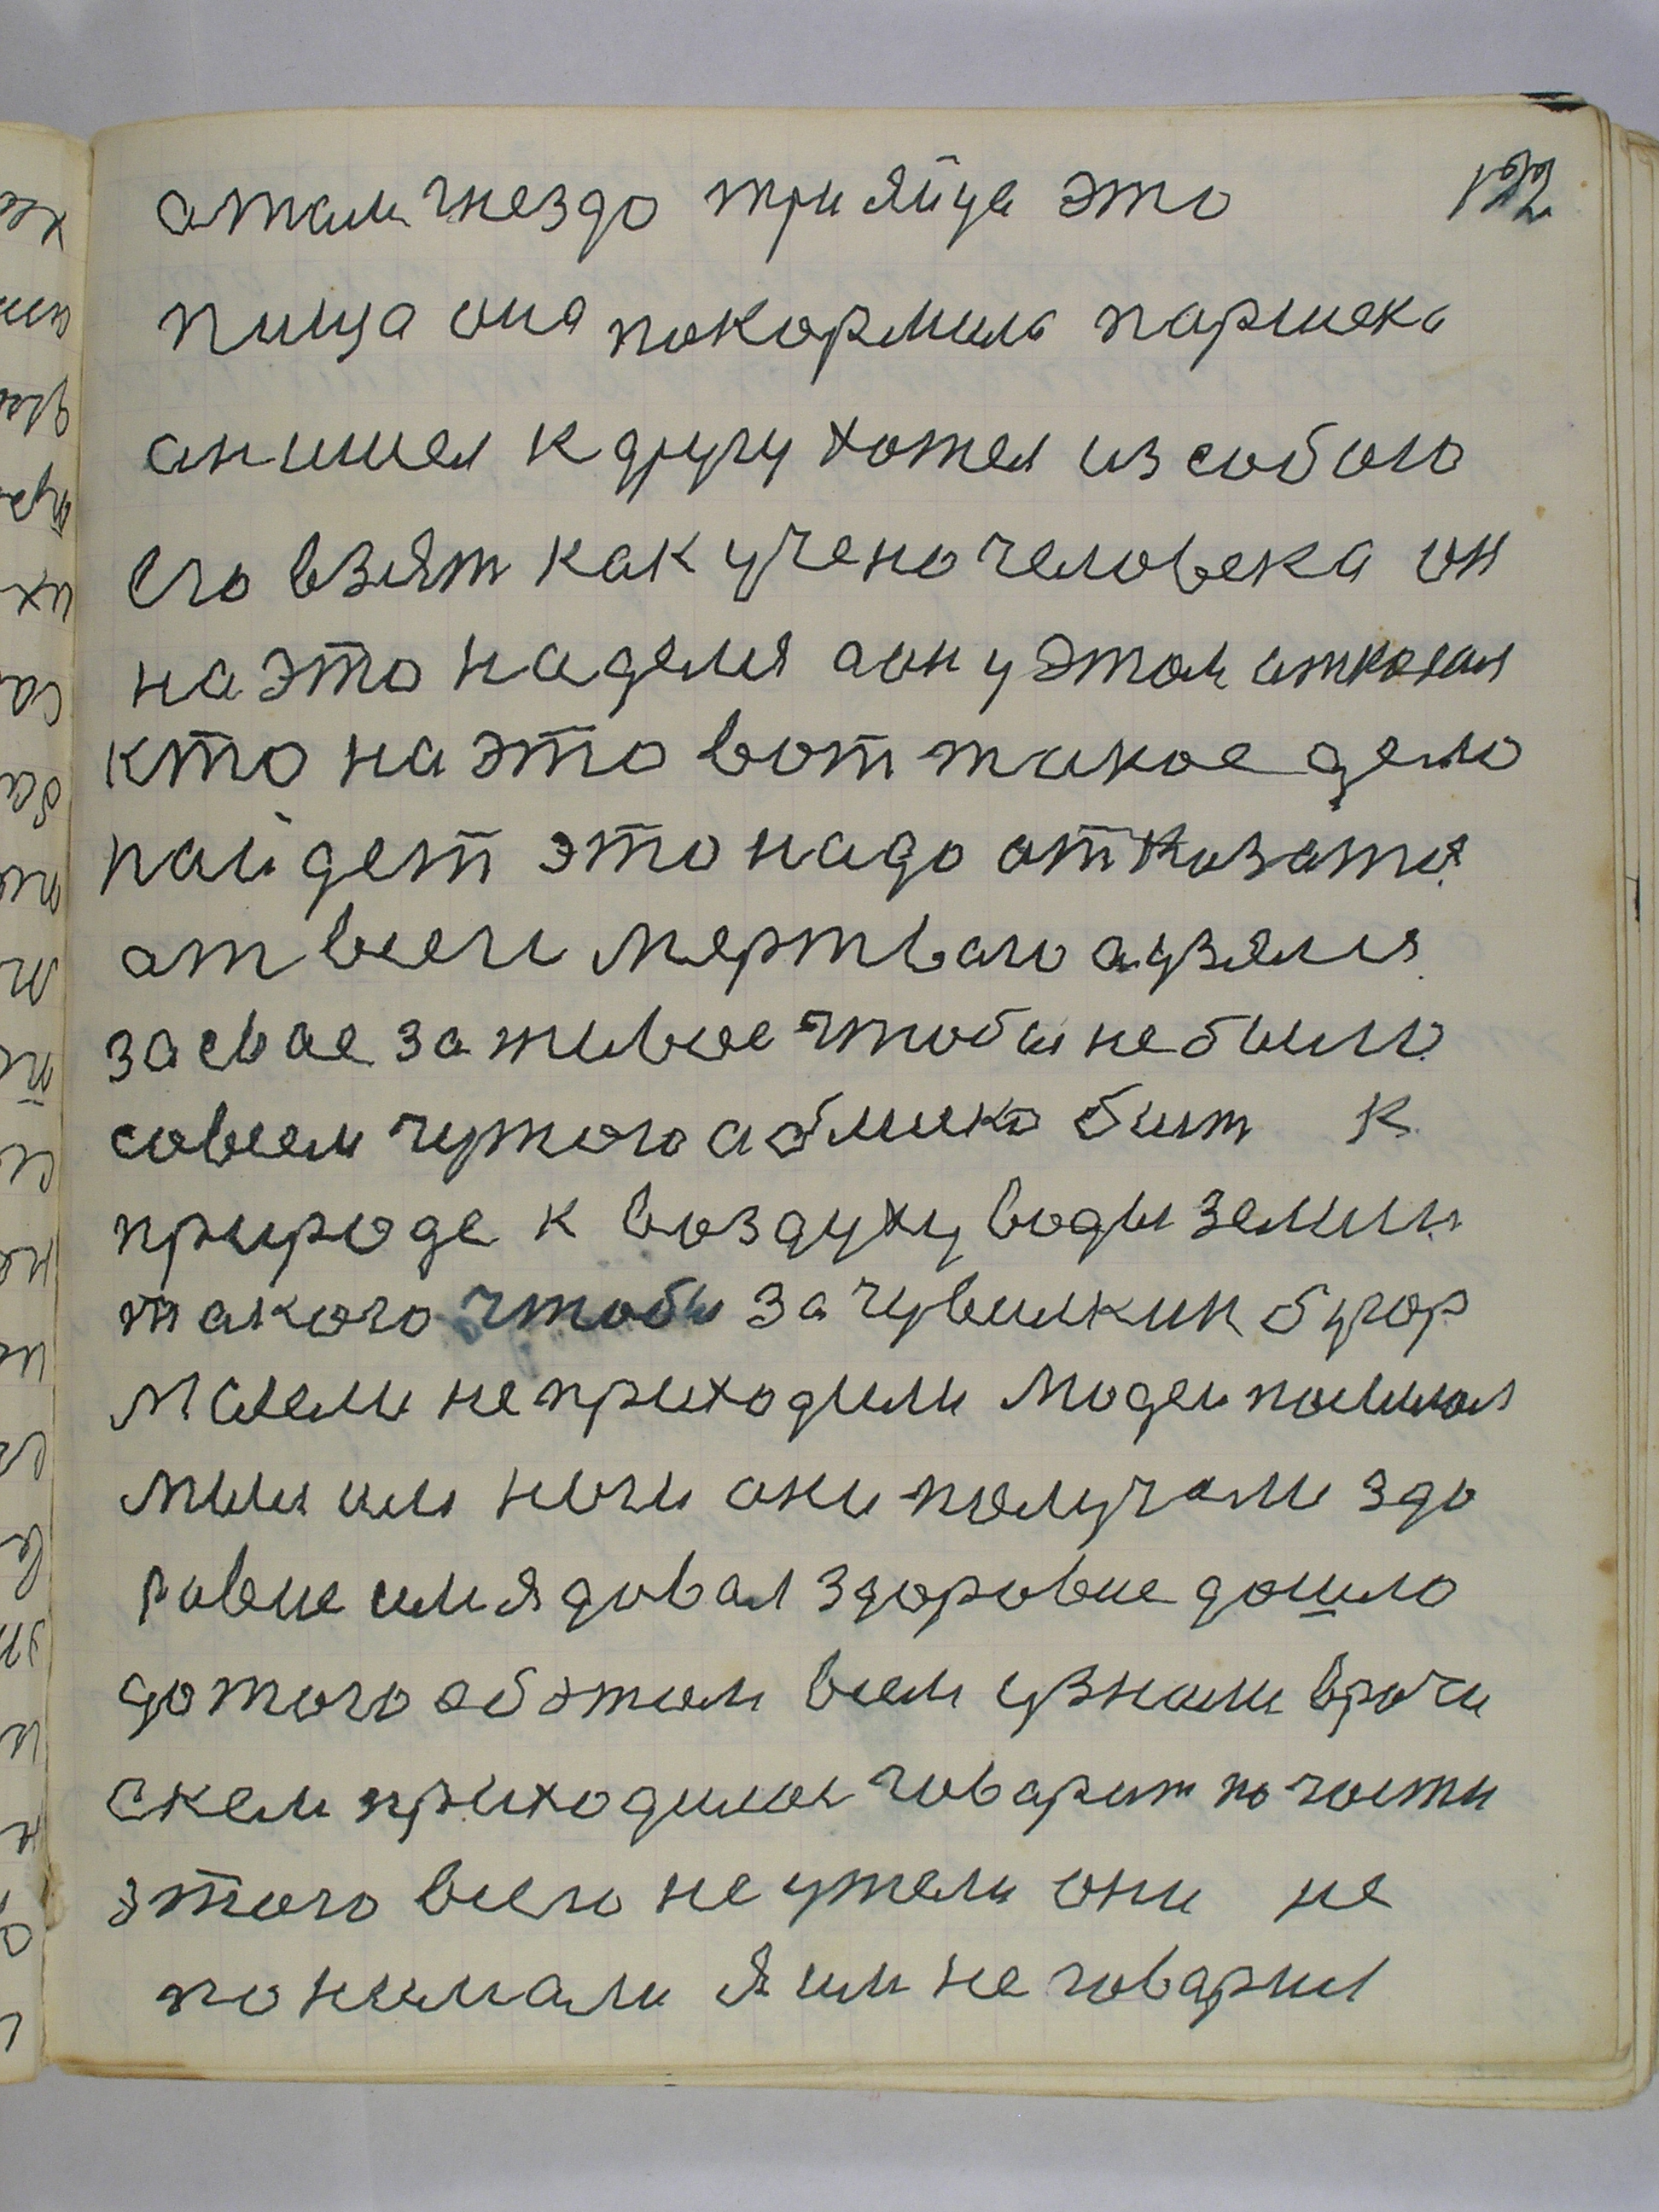 122
атам гнездо три яйца это
пища она покормила паршека
аншел к другу хотел из собою
его взят как учено человека он
на это наделя а он у этом отковал
кто на это вот такое дело
пайдет это надо отказатя
ат всего мертваго а узяля
за свае за живое чтобы не было
совсем чужого а облико быт к
природе к воздуху воды земли
такого чтобы за чувилкин бугор
массы не приходили людеи
мыл им ноги они получали здо
равие им я довал здоровие дошло
до того об этом всем узнали врачи
с кем приходилос говарит по части
этого всего не ужели они не
понимали я им не говарил